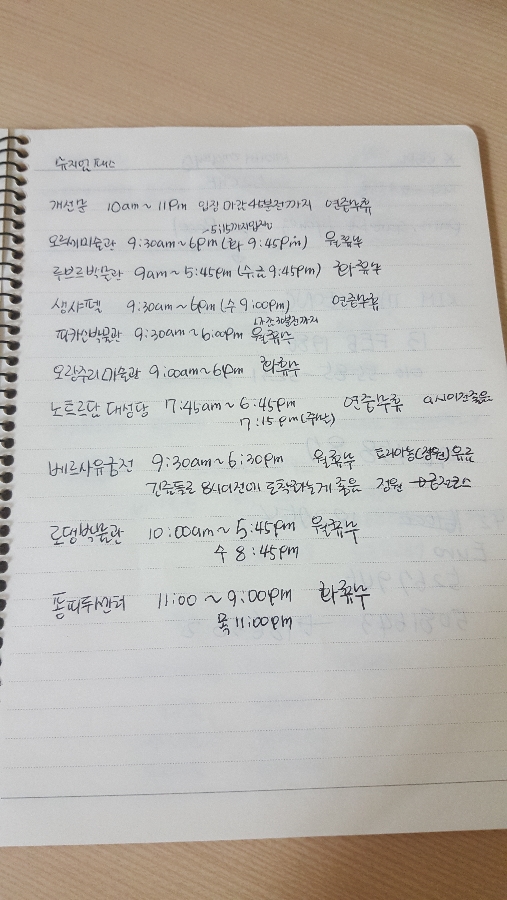 뮤지엄패스
개선문 10am ~ 11pm 입장 마감 45분전까지 연중무휴
~5:15까지입장
오르세미술관 9:30am ~ 6pm (화 9:45pm) 월휴무
루브르박물관 9am ~ 5:45pm (수,금 9:45pm) 화휴무
생샤펠 9:30am ~ 6pm (수 9:00pm) 연중무휴
30분전까지
피카소박물관 9:30am ~ 6:00pm 월휴무
오랑주리미술관 9:00am ~ 6pm 화휴무
노트르담 대성당 7:45am ~ 6:45pm 연중무휴
7:15pm (주말)
베르사유궁전 9:30am ~ 6:30pm 월휴무 트리아농(정원) 유료
8시이전에 도착하는게 좋음 정원
로댕박물관 10:00am ~ 5:45pm 월휴무
수 8:45pm
퐁피두센터 11:00 ~ 9:00pm 화휴무
목 11:00pm